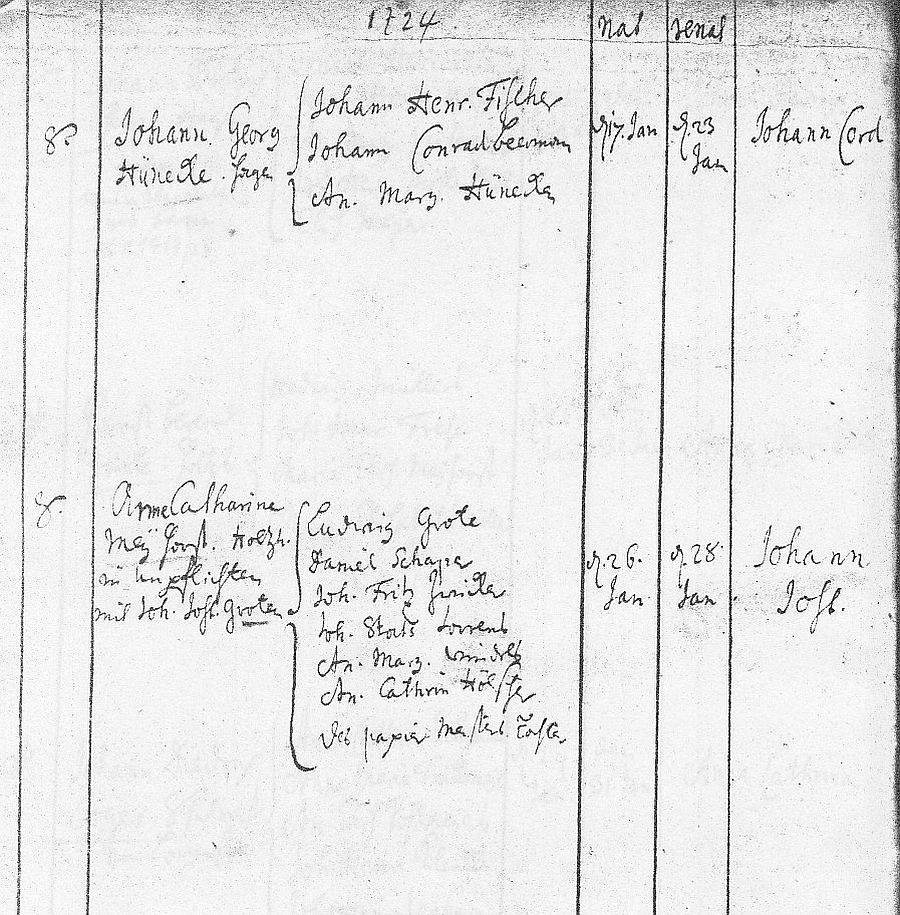 1724.
nat
renat
8.
Johann Georg
Hünecke
Johann Henr. Fischer
Johann Conrad
An. Marg. Hünecken
d. 17. Jan
d. 23
Jan
Johann Cord
8.
Anne Catharine
Meÿ
in unpflichten
mit Joh. Jost. Groten
Ludwig Grote
Daniel Schaper
Joh. Fritz
Joh. Stats
An. Marg.
An. Cathrin Hölscher
des papier Meisters Tochter
d. 26.
Jan
d. 28.
Jan.
Johann
Jost.